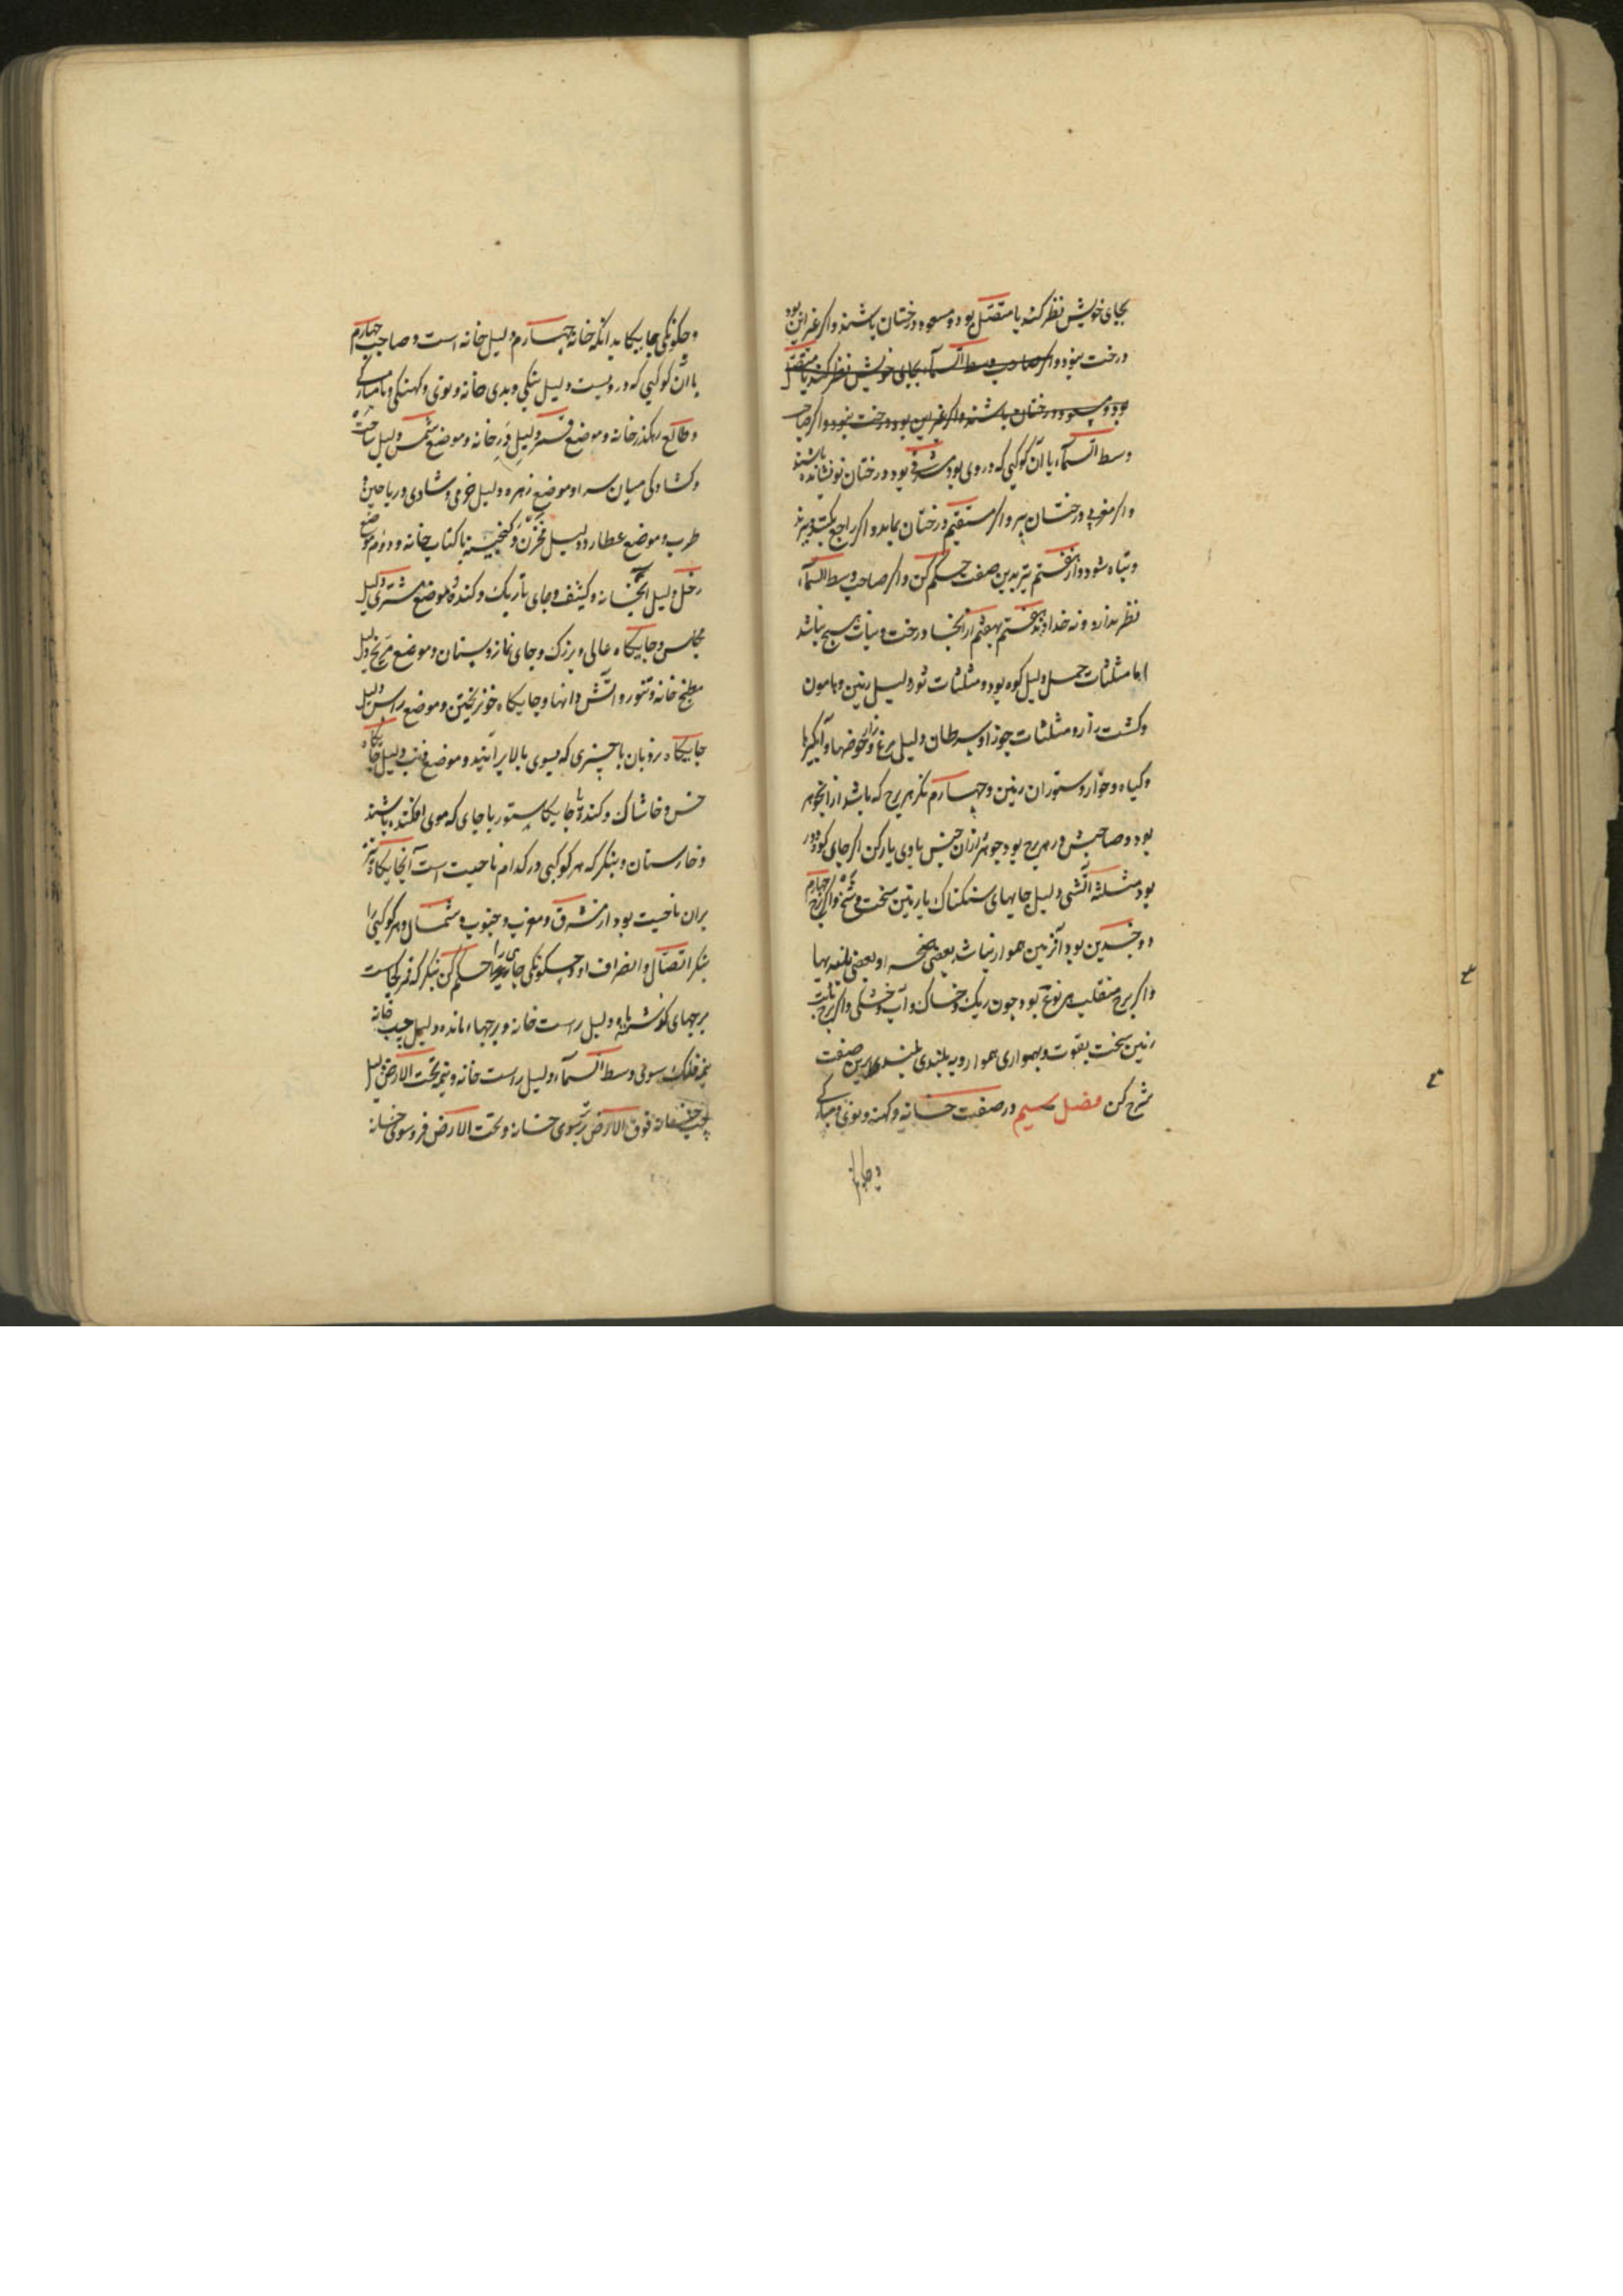 بجای خویش نظر کند یا متصل بود و مسعود درختان باشند و اگر غیر این بود
درخت نبود و اگر صاحب وسط السمآء بجای خویش نظر کند یا متصل
بود و مسعود درختان باشند و اگر غیر این بود درخت نبود و اگر صاحب
وسط السمآء یا آن کوکبی که در وی بود مشرقی بود درختان نو نشانده باشند
و اگر مغربی درختان پیر و اگر مستقیم درختان بماند و اگر راجع
و تباه شود و از هفتم نیز بدین صفت حکم کن و اگر صاحب وسط السمآء
نظر ندارد و نه خداوند هفتم بهفتم از آنجا درخت و نبات هیچ نباشد
اما مثلثات حمل دلیل کوه بود و مثلثات ثور دلیل زمین و هامون
و کشت زار و مثلثات جوزا و سرطان دلیل مرغ زار و حوضها و آبگیرها
و گیاه و خوار و ستوران زمین و چهارم نگر هر برج که باشد از آن جوهر
بود و صاحبش در هر برج بود جوهر از آن جنس با وی یار کن اگر جای گو
بود مثلثه آتشی دلیل جایهای سنگناک با زمین سخت و شخ و اگر برج چهارم
دو جسدین بود آن زمین هموار نباشد بعضی و بعضی
و اگر برج منقلب هر نوع بود چون ریگ و خاک و آب و خشکی و اگر برج ثابت
زمین سخت بقوت و بهمواری هموار و به بلندی بلند برین صفت
شرح کن فصل سیم در صفت خانه و کهنه و نوی و مبارکی
و چگونگی جایگاه بدانکه خانه چهارم دلیل خانه است و صاحب چهارم
یا آن کوکبی که دروست دلیل نیکی و بدی خانه و نوی و کهنگی و نامبارکی
و طالع رهگذر خانه و موضع قمر دلیل در خانه و موضع شمس دلیل ساحت
و گشادگی میان سرا و موضع زهره دلیل خرمی و شادی و ریاحین و
طرب و موضع عطارد دلیل مخزن و گنجینه یا کتاب خانه و دوم موضع
زحل دلیل آبخانه و کنیف و جای تاریک و گنده و موضع مشتری دلیل
مجلس و جایگاه عالی و بزرگ و جای نماز و بستان و موضع مریخ دلیل
مطبخ خانه و تنور و آتش دانها و جایگاه خون ریختن و موضع راس دلیل
جایگاه نردبان یا چیزی که بسوی بالا برآیند و موضع ذنب دلیل جایگاه
خس و خاشاک و گنده یا جایگاه ستور یا جای که موی افکنده باشند
و خارستان و بنگر که هر کوکبی در کدام ناحیت است آن جایگاه نیز
بران ناحیت بود از مشرق و مغرب و جنوب و شمال و هر کوکبی را
بنگر اتصال و انصراف او و چگونگی جای را حکم کن بنگر که قمر کجاست
برجهای گذشته دلیل راست خانه و برجهاء مانده دلیل چپ خانه
نیمه فلک سوی وسط السمآء دلیل راست خانه و نیمه تحت الارض دلیل
چپ خانه فوق الارض برسوی خانه و تحت الارض فروسوی خانه